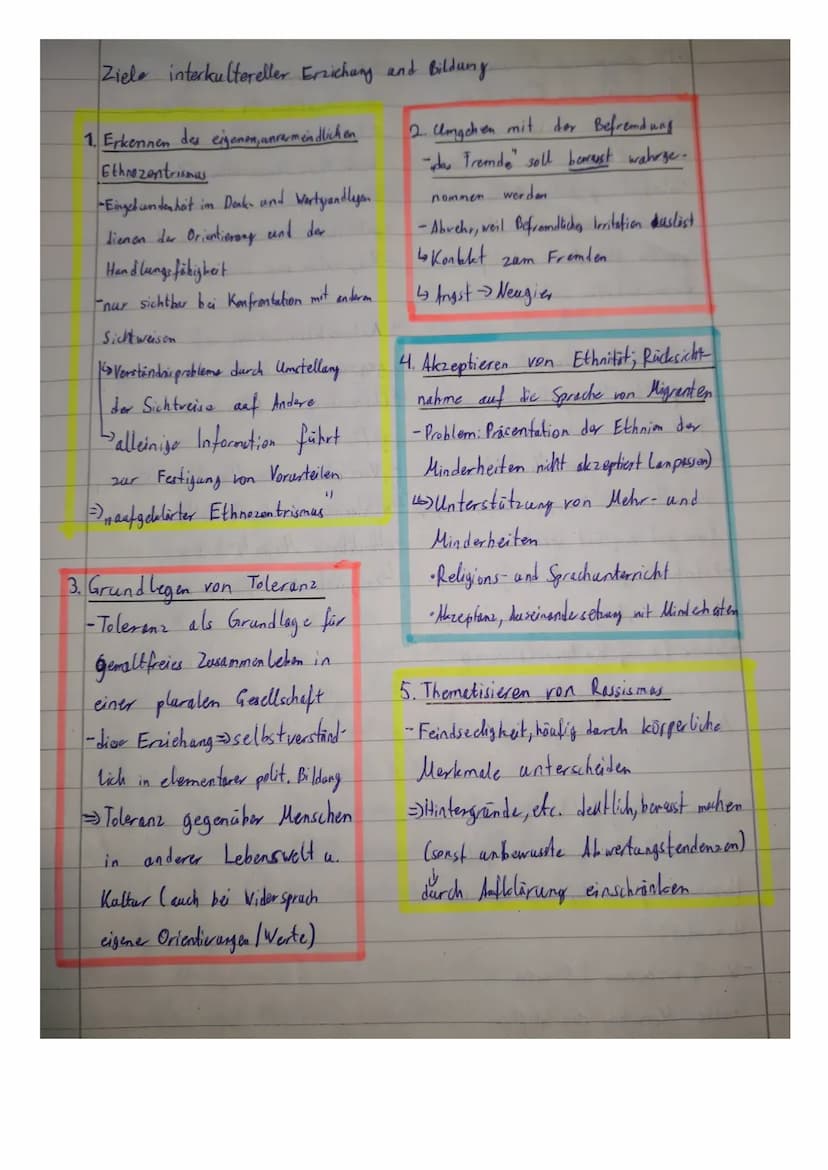 Ziele interkultureller Erziehung und Bildung
1. Erkennen des eigenen, unvermeidlichen
Ethnozentrismus
- Eingebundenheit im Denk- und Wertgrundlagen
dienen der Orientierung und der
Handlungsfähigkeit
- nur sichtbar bei Konfrontation mit anderen
Sichtweisen
↳ Verständnisprobleme durch Umstellung
der Sichtweise auf Andere
↳ alleinige Information führt
zur Festigung von Vorurteilen
⇒ „aufgeklärter Ethnozentrismus"
2. Umgehen mit der Befremdung
- „das Fremde" soll bewusst wahrge-
nommen werden
- Abwehr, weil Befremdliches Irritation auslöst
↳ Kontakt zum Fremden
↳ Angst → Neugier
3. Grundlegen von Toleranz
- Toleranz als Grundlage für
gewaltfreies Zusammenleben in
einer pluralen Gesellschaft
- diese Erziehung ⇒ selbstverständ-
lich in elementarer polit. Bildung
⇒ Toleranz gegenüber Menschen
in anderer Lebenswelt u.
Kultur (auch bei Widerspruch
eigene Orientierungen/Werte)
4. Akzeptieren von Ethnität; Rücksicht-
nahme auf die Sprache von Migranten
- Problem: Präsentation der Ethnien der
Minderheiten nicht akzeptiert (anpassen)
↳ Unterstützung von Mehr- und
Minderheiten
• Religions- und Sprachunterricht
• Akzeptanz, Auseinandersetzung mit Minderheiten
5. Thematisieren von Rassismus
- Feindseeligkeit, häufig durch körperliche
Merkmale unterscheiden
⇒ Hintergründe, etc. deutlich, bewusst machen
(sonst unbewusste Abwertungstendenzen)
↓
durch Aufklärung einschränken